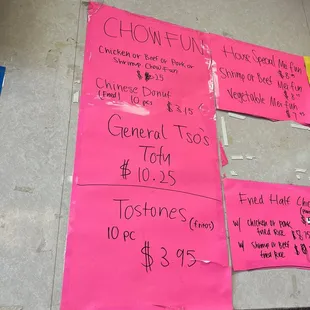 CHOW FUN
Chicken or Beef or Pork or
Shrimp Chow Fun
Chinese Donut
(Fried) 10 pcs $3.75
General Tso's
Tofu
$10.25
Tostones (fritos)
10 pc
$3.95
House Special Mei fun
Shrimp or Beef Mei fun
Vegetable Mei fun
Fried Half
w/ Chicken or Pork
fried Rice
w/ Shrimp or Beef
fried Rice